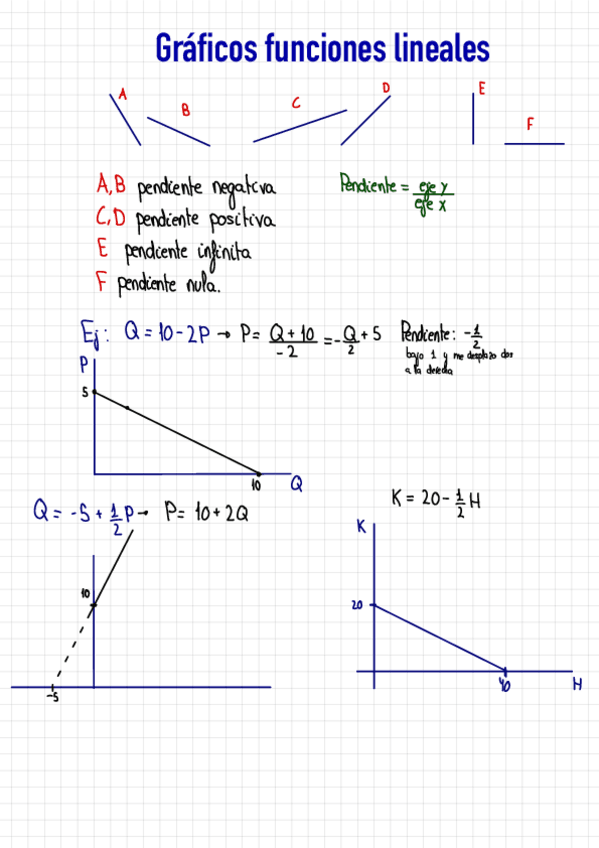 Gráficos funciones lineales
A B C D E F
A,B pendiente negativa
Pendiente = eje y / eje x
C,D pendiente positiva
E pendiente infinita
F pendiente nula.
Ej: Q = 10 - 2P → P = Q + 10 / -2 = -Q/2 + 5 Pendiente: -1/2
bajo 1 y me desplazo dos
a la derecha
P
5
10 Q
Q = -5 + 1/2 P → P = 10 + 2Q
K = 20 - 1/2 H
K
10
20
-5
40 H